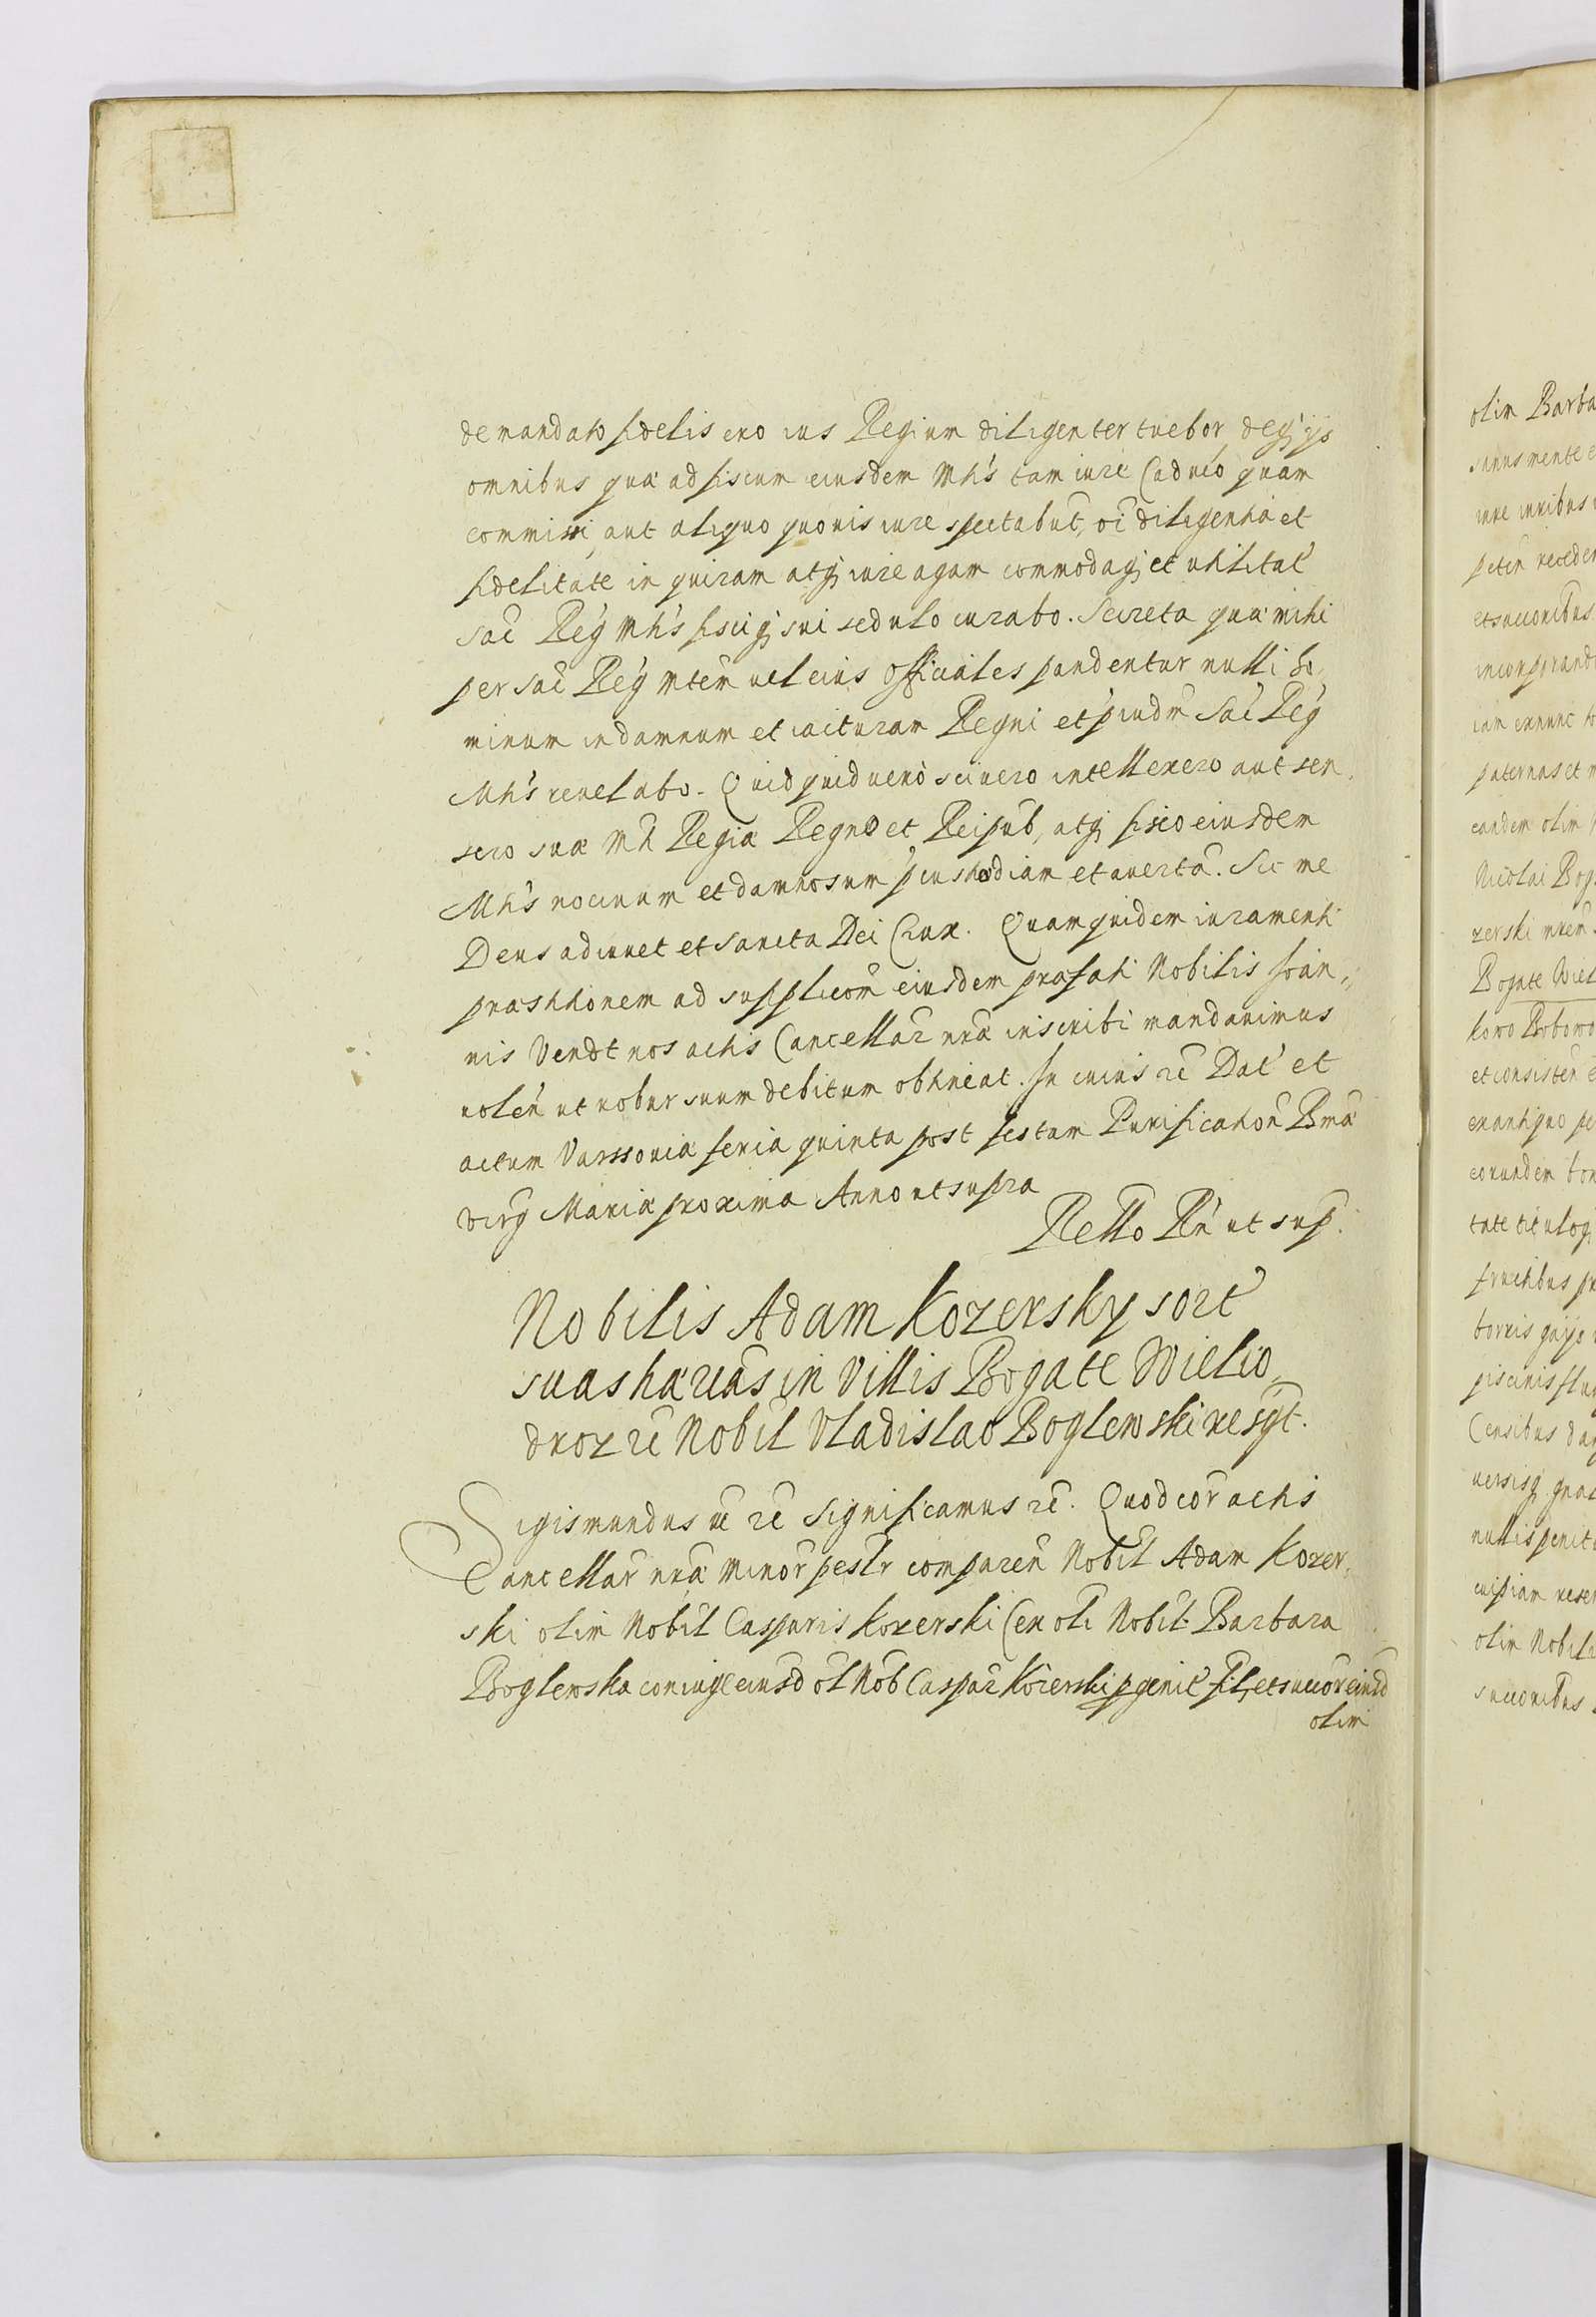 demandato fidelis ero ius Regium diligenter tuebor deq₃ ijs
omnibus quæ ad fiscum eiusdem Mtis tam iure Caduco quam
commissi, aut aliquo quovis iure spectabunt, oi diligentia et
fidelitate inquiram atq₃ iure agam commodaq₃ et utilitat
Sac Reg Mtis fisciq₃ sui sedulo curabo. Secreta quæ mihi
per Sac Reg Mtem vel eius officiales pandentur nulli ho,
minum in damnum et iacturam Regni et p̃iudm Sac Reg
Mtis revelabo. Quidquid verò scivero intellexero aut sen,
sero suæ Mti Regiæ Regno et Reipub, atq₃ fisco eiusdem
Mtis nocivum et damnosum p̃custodiam et averta. Sic me
Deus adiuvet et Sancta Dei Crux. Quam quidem iuramenti
præstitionem ad supplicõm eiusdem præfati Nobilis Joan,,
nis Vendt nos actis Cancellar nræ inscribi mandavimus
volen ut robur suum debitum obtineat. In cuius rē Dat et
actum Varssoviæ feria quinta post festum Purification Bmæ
Virg Mariæ proxima Anno ut supra
Rello Rn ut sup.
Nobilis Adam Kozersky sort
suas hæreas in Villis Bogate Wielio,
drozze Nobil Vladislao Boglewski resgt.
Sigismundus re re Significamus re. Quod cor actis
Cancellar nræ Minor pestr comparen Nobil Adam Kozer,
ski olim Nobil Casparis Kozerski Cex oli Nobil Barbara
Boglewska coniuge eiusd ol Nob Caspar Kozerski pgenit fil, et succor eiusd
olim
olim Barba
sanus mente e
iure iuribus
et succoribus
paternas et
eandem olim
Nicolai Bog
zerski
Bogate Wiel
kowo Bobowo
et consisten
ex antiquo
eorundem bon
tate tituloq₃
fructibus
piscinis flu
Censibus
nullis penit
cuipiam reser
olim Nobil
succoribus